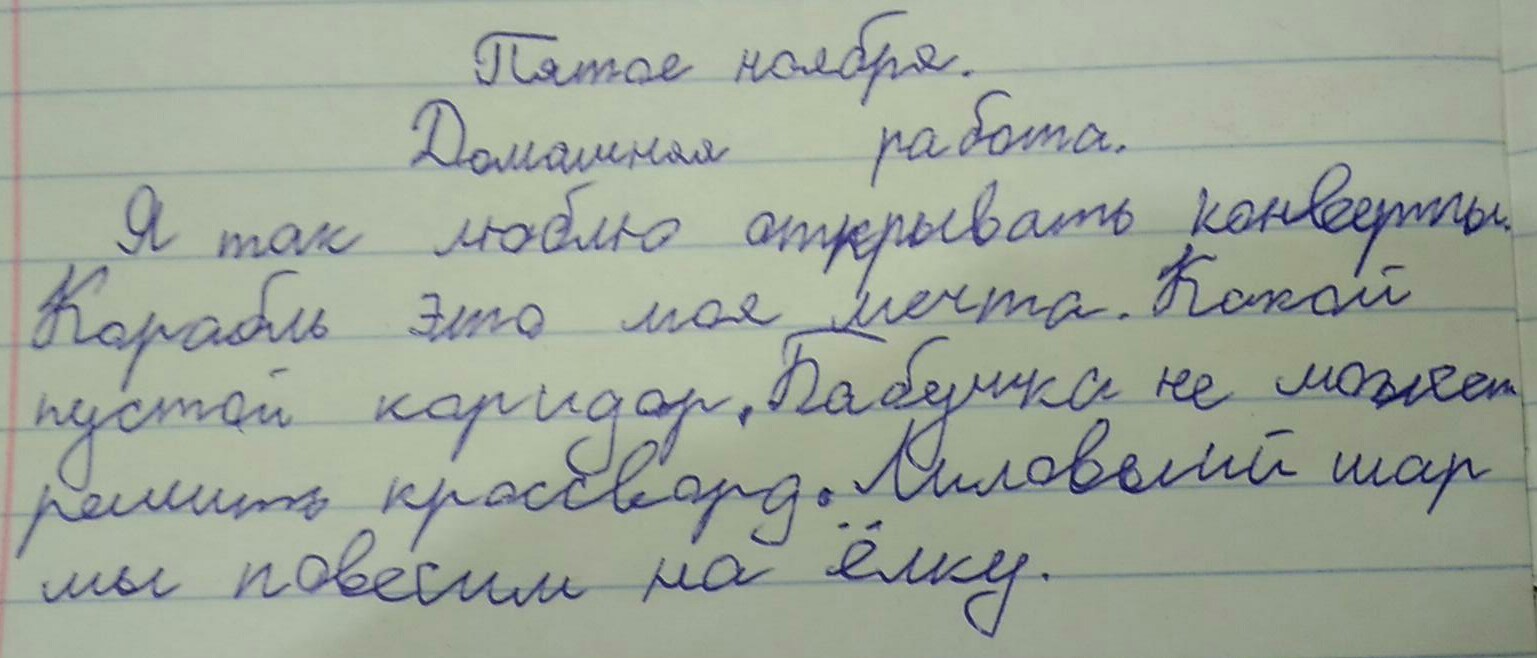 Пятое ноября.
Домашняя работа.
Я так люблю открывать конверты.
Корабль это моя мечта. Какой
пустой каридор. Бабушка не может
решить кроссворд. Лиловый шар
мы повесим на ёлку.